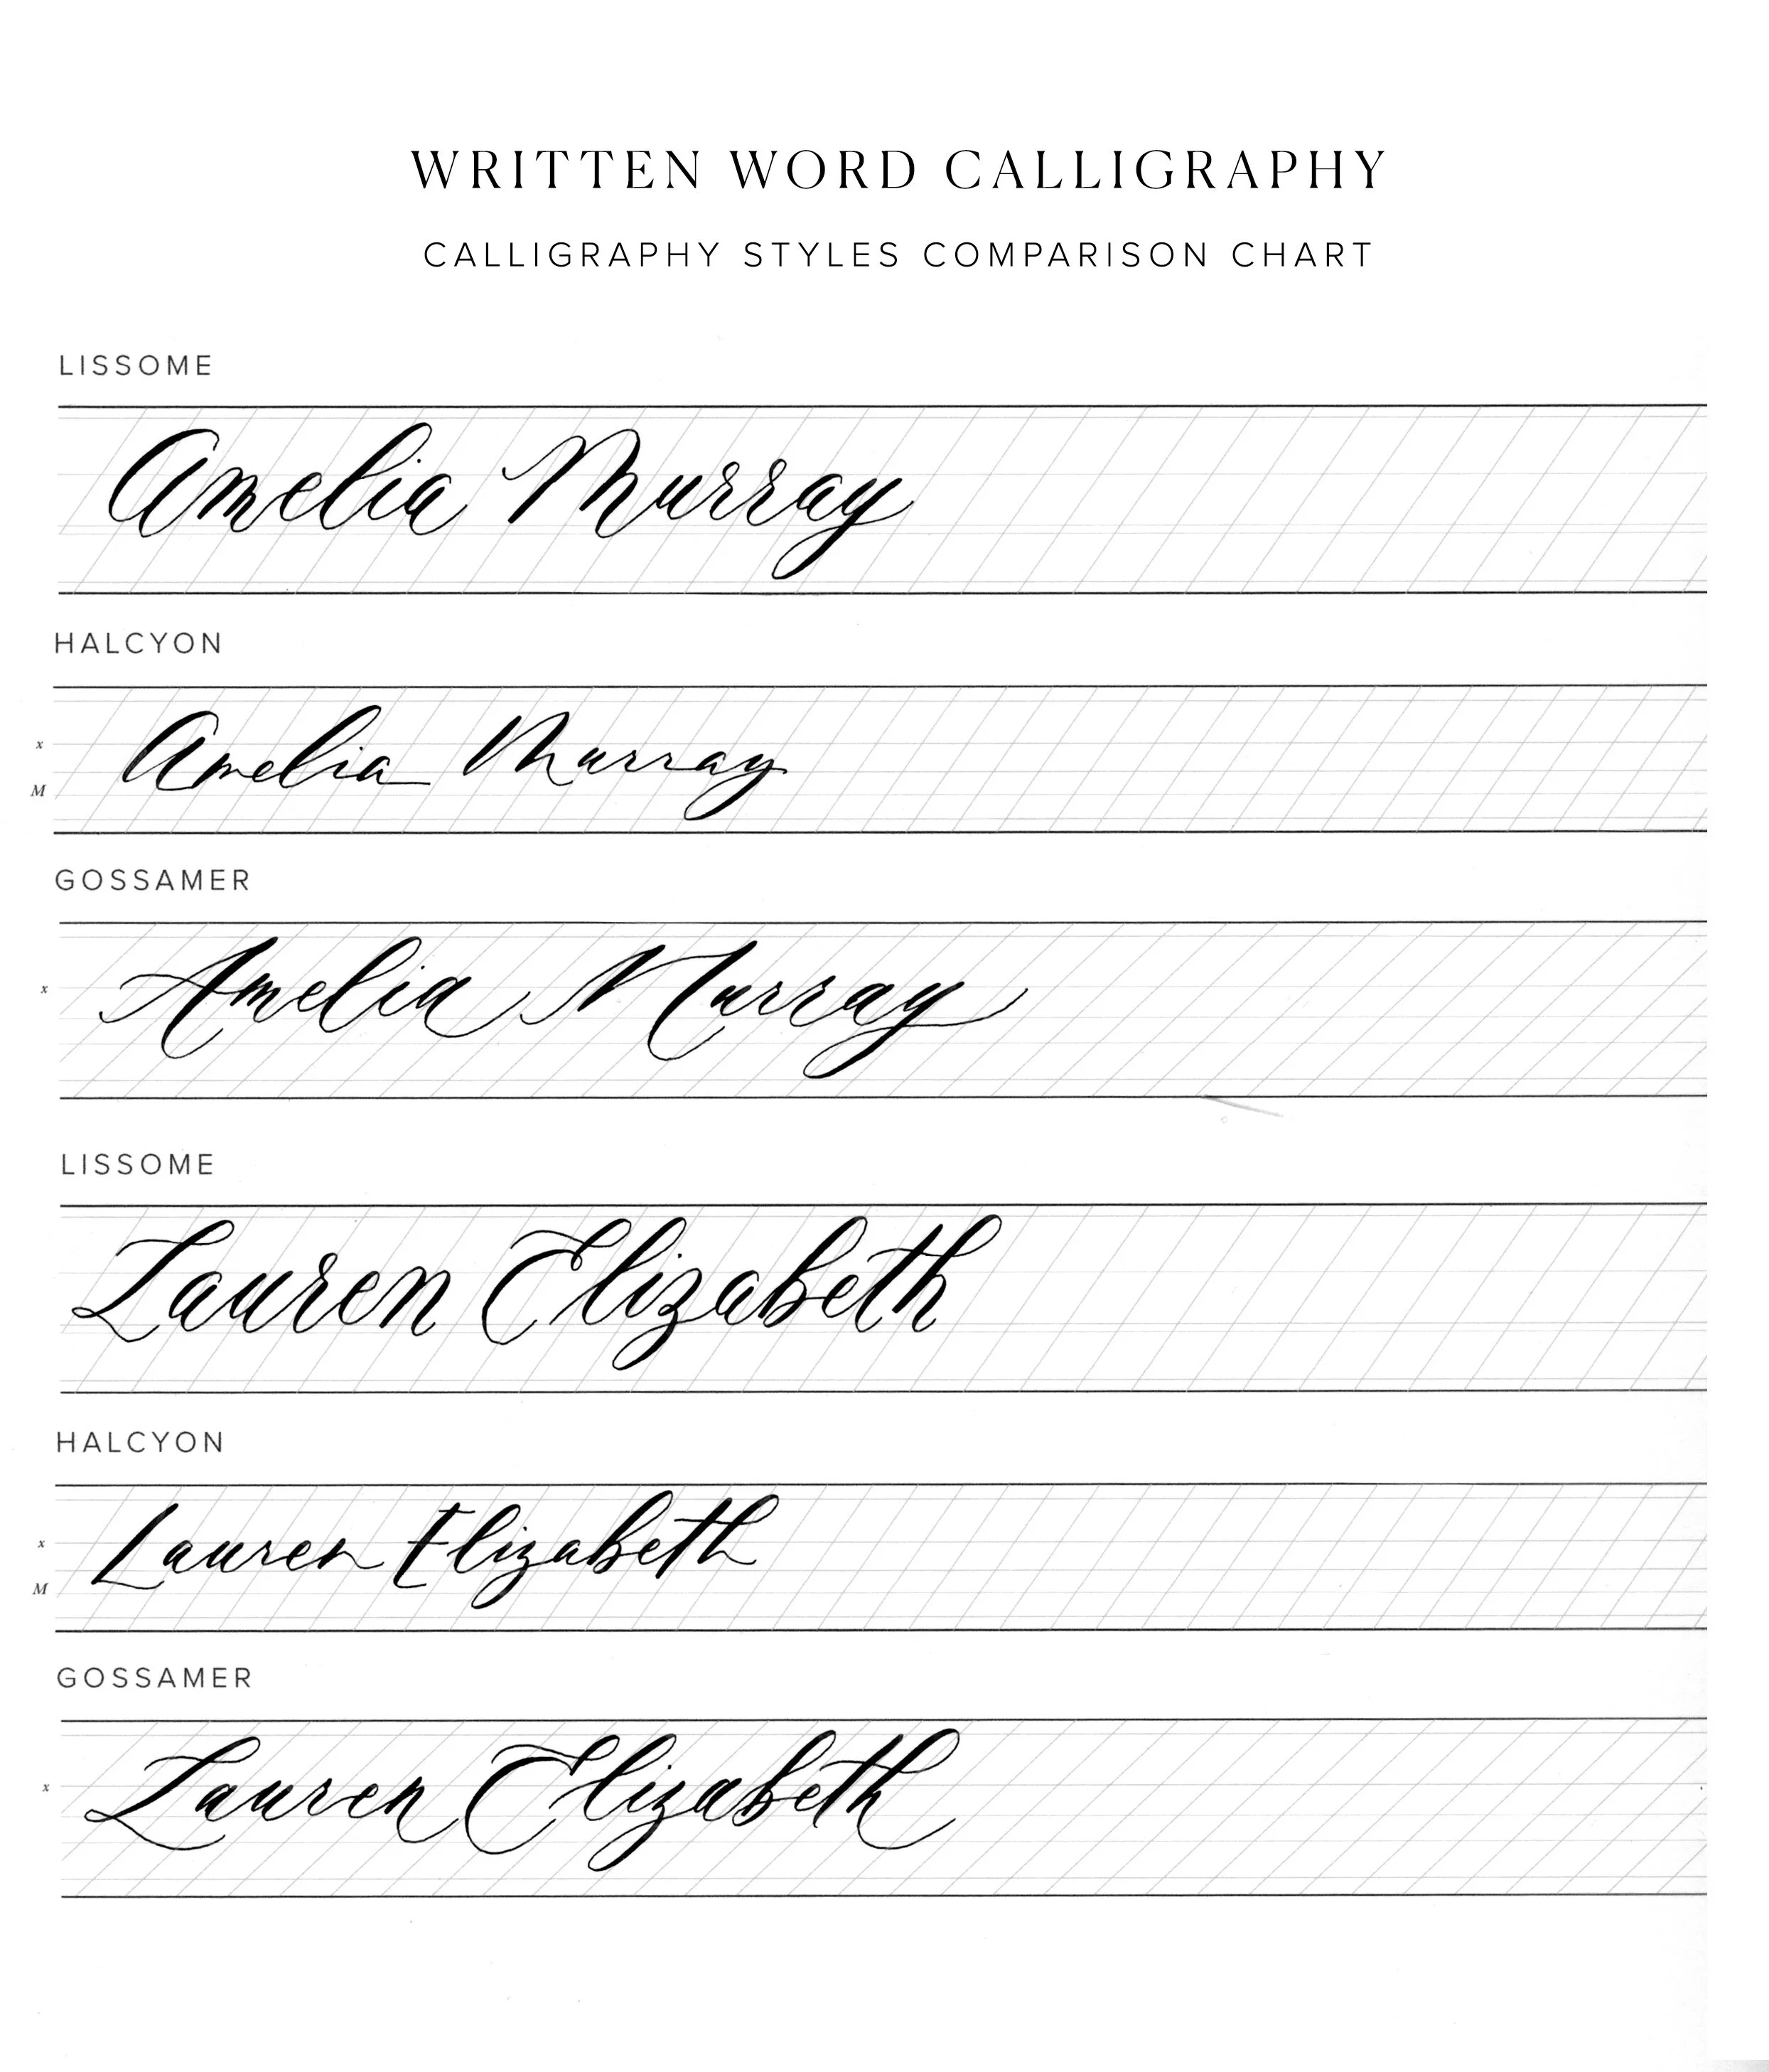 WRITTEN WORD CALLIGRAPHY
CALLIGRAPHY STYLES COMPARISON CHART
LISSOME
Amelia Murray
HALCYON
x
Amelia Murray
M
GOSSAMER
x
Amelia Murray
LISSOME
Lauren Elizabeth
HALCYON
x
Lauren Elizabeth
M
GOSSAMER
x
Lauren Elizabeth